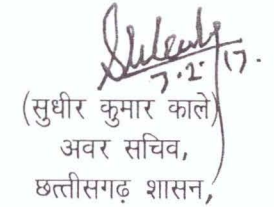 7.2.17.
(सुधीर कुमार काले)
अवर सचिव,
छत्तीसगढ़ शासन,